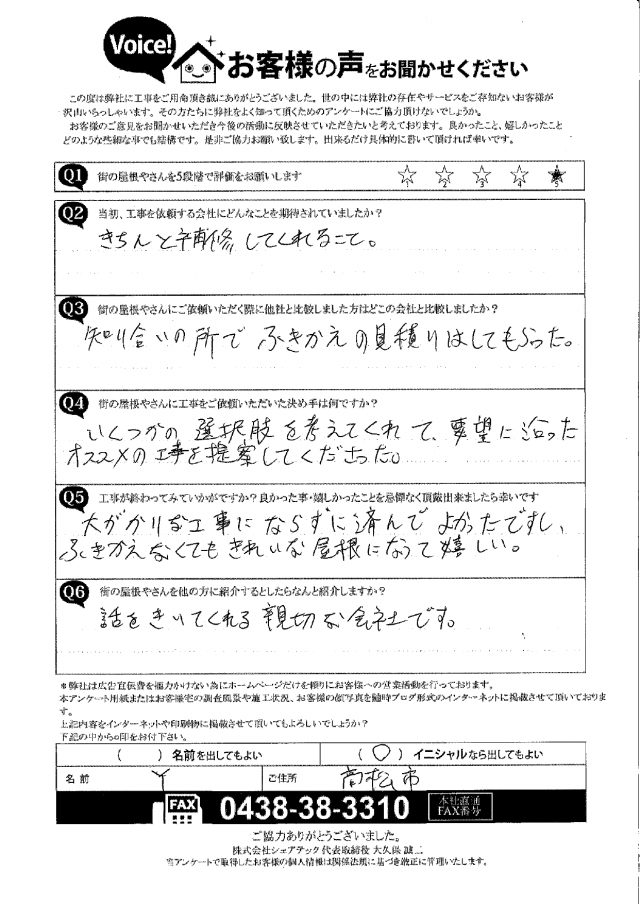 Voice! お客様の声をお聞かせください
この度は弊社に工事をご用命頂き誠にありがとうございました。世の中には弊社の存在やサービスをご存知ないお客様が
沢山いらっしゃいます。その方たちに弊社をよく知って頂くためのアンケートにご協力頂けないでしょうか。
お客様のご意見をお聞かせいただき今後の活動に反映させていただきたいと考えております。良かったこと、嬉しかったこと
どのような些細な事でも結構です。是非ご協力お願い致します。出来るだけ具体的に書いて頂ければ幸いです。
Q1 街の屋根やさんを5段階で評価をお願いします ☆1 ☆2 ☆3 ☆4 ★5
Q2 当初、工事を依頼する会社にどんなことを期待されていましたか?
きちんと補修してくれること。
Q3 街の屋根やさんにご依頼いただく際に他社と比較しました方はどこの会社と比較しましたか?
知り合いの所でふきかえの見積りはしてもらった。
Q4 街の屋根やさんに工事をご依頼いただいた決め手は何ですか?
いくつかの選択肢を考えてくれて、要望に沿った
オススメの工事を提案してくださった。
Q5 工事が終わってみていかがですか?良かった事・嬉しかったことを忌憚なく頂戴出来ましたら幸いです
大がかりな工事にならずに済んでよかったですし、
ふきかえなくてもきれいな屋根になって嬉しい。
Q6 街の屋根やさんを他の方に紹介するとしたらなんと紹介しますか?
話をきいてくれる親切な会社です。
*弊社は広告宣伝費を極力かけない為にホームページだけを頼りにお客様への営業活動を行っております。
本アンケート用紙またはお客様宅の調査風景や施工状況、お客様の顔写真を随時ブログ形式のインターネットに掲載させて頂いておりま
す。
上記内容をインターネットや印刷物に掲載させて頂いてもよろしいでしょうか?
下記の中から○印をお付け下さい。
( ) 名前を出してもよい (○) イニシャルなら出してもよい
名前 Y ご住所 高松市
FAX 0438-38-3310 本社直通 FAX番号
ご協力ありがとうございました。
株式会社シェアテック 代表取締役 大久保 誠二
当アンケートで取得したお客様の個人情報は関係法規に基づき厳正に管理いたします。